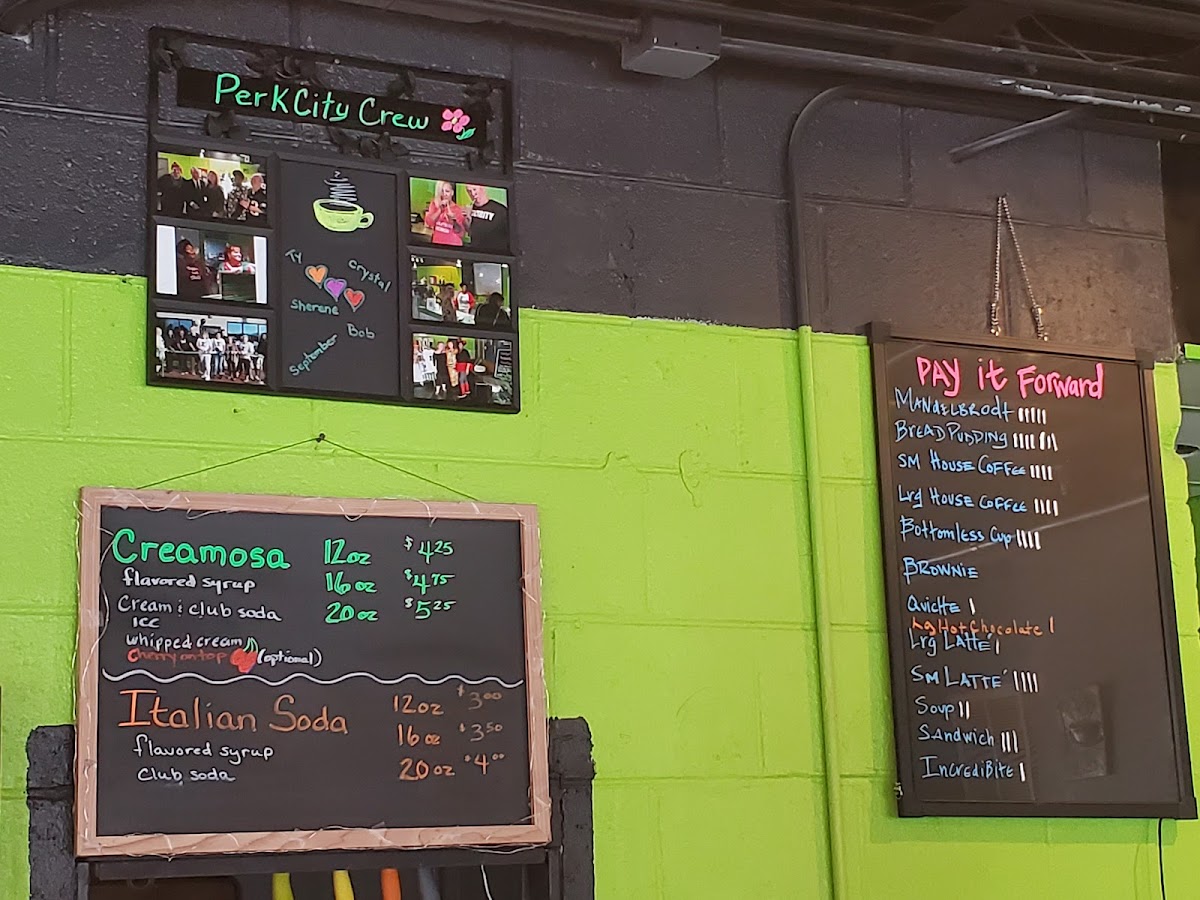 PerkCity Crew
Ty
Crystal
Sherene
Bob
September
Creamosa 12oz $4.25
flavored syrup 16oz $4.75
Cream & club soda 20oz $5.25
ICE
whipped cream
cherry on top (optional)
Italian Soda 12oz $3.00
flavored syrup 16oz $3.50
club soda 20oz $4.00
PAY it Forward
MANDELBRODT
BREAD PUDDING
SM HOUSE COFFEE
Lrg HOUSE COFFEE
Bottomless Cup
BROWNIE
QUICHE
Lg Hot Chocolate
Lrg LATTÉ
SM LATTÉ
Soup
SANdwich
INCREDIBITE